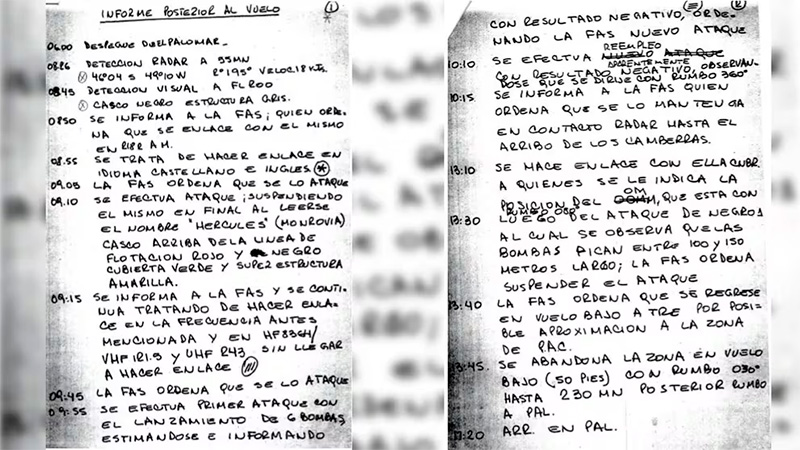 INFORME POSTERIOR AL VUELO
1
0600 DESPEGUE DU ELPALOMAR_
0826 DETECCION RADAR A 55MN
46º04 S 49º10 W Rº195º VELOC. 18 KTS.
0845 DETECCION VISUAL A FL 200
CASCO NEGRO ESTRUCTURA GRIS.
0850 SE INFORMA A LA FAS; QUIEN ORDE-
NA QUE SE ENLACE CON EL MISMO
EN 2182 A M.
08.55 SE TRATA DE HACER ENLACE EN
IDIOMA CASTELLANO E INGLES. *
09.05 LA FAS ORDENA QUE SE LO ATAQUE
09.10 SE EFECTUA ATAQUE; SUSPENDIENDO
EL MISMO EN FINAL AL LEERSE
EL NOMBRE "HERCULES" (MONROVIA)
CASCO ARRIBA DE LA LINEA DE
FLOTACION ROJO Y NEGRO
CUBIERTA VERDE Y SUPER ESTRUCTURA
AMARILLA.
09:15 SE INFORMA A LA FAS Y SE CONTI-
NUA TRATANDO DE HACER ENLA-
CE EN LA FRECUENCIA ANTES
MENCIONADA Y EN HF 8364/
VHF 121.5 Y UHF 243 SIN LLEGAR
A HACER ENLACE
09:45 LA FAS ORDENA QUE SE LO ATAQUE
09:55 SE EFECTUA PRIMER ATAQUE CON
EL LANZAMIENTO DE 6 BOMBAS,
ESTIMANDOSE E INFORMANDO
2
CON RESULTADO NEGATIVO, ORDE-
NANDO LA FAS NUEVO ATAQUE
REEMPLEO
10:10 SE EFECTUA NUEVO ATAQUE
APARENTEMENTE
CON RESULTADO NEGATIVO, OBSERVAN-
DOSE QUE SE DIRIJE CON RUMBO 360º
10:15 SE INFORMA A LA FAS QUIEN
ORDENA QUE SE LO MANTENGA
EN CONTACTO RADAR HASTA EL
ARRIBO DE LOS CAMBERRAS.
13:10 SE HACE ENLACE CON ELLA CNBR.
A QUIENES SE LE INDICA LA
OM
POSICION DEL , QUE ESTA CON
RUMBO 080º
13:30 LUEGO DEL ATAQUE DE NEGRO 1
AL CUAL SE OBSERVA QUE LAS
BOMBAS PICAN ENTRE 100 Y 150
METROS LARGO; LA FAS ORDENA
SUSPENDER EL ATAQUE
13:40 LA FAS ORDENA QUE SE REGRESE
EN VUELO BAJO A TRE POR POSI-
BLE APROXIMACION A LA ZONA
DE PAC.
13:45. SE ABANDONA LA ZONA EN VUELO
BAJO (50 PIES) CON RUMBO 030º
HASTA 230 MN POSTERIOR RUMBO
A PAL.
17:20 ARR. EN PAL.